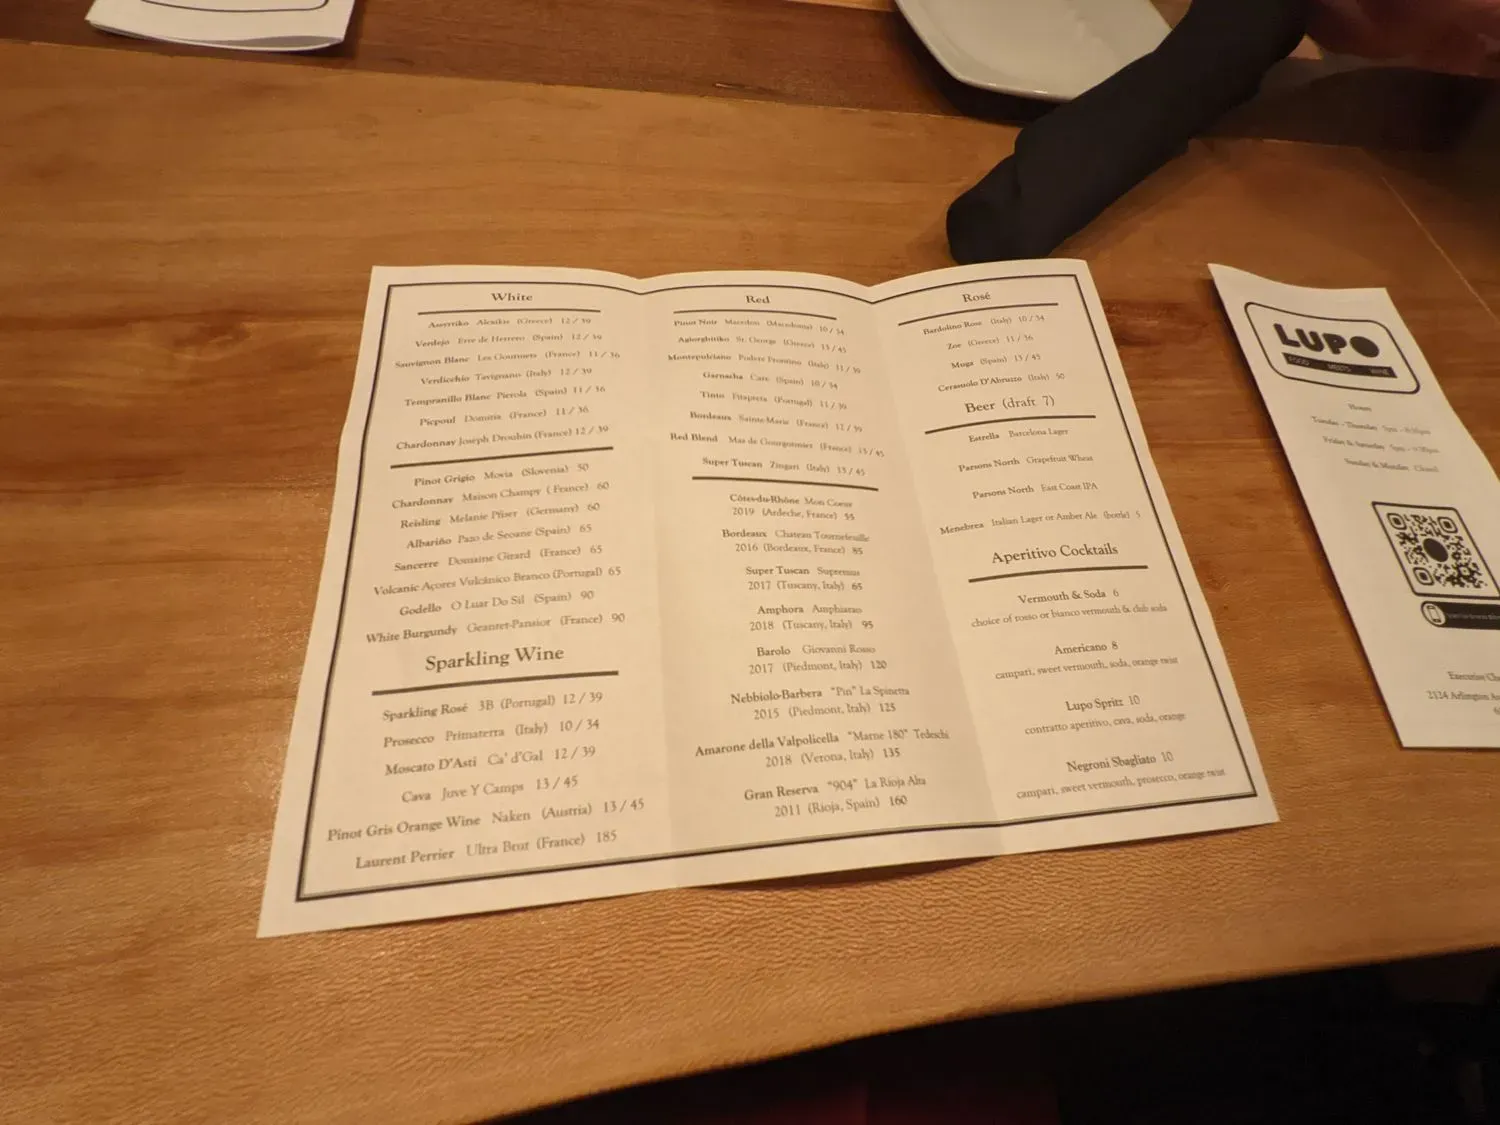 White
Assyrtiko Alexakis (Greece) 12 / 39
Verdejo Erre de Herrero (Spain) 12 / 39
Sauvignon Blanc Les Gourmets (France) 11 / 36
Verdicchio Tavignano (Italy) 12 / 39
Tempranillo Blanc Pierola (Spain) 11 / 36
Picpoul Domitia (France) 11 / 36
Chardonnay Joseph Drouhin (France) 12 / 39
Pinot Grigio Movia (Slovenia) 50
Chardonnay Maison Champy ( France) 60
Reisling Melanie Pfiser (Germany) 60
Albariño Pazo de Seoane (Spain) 65
Sancerre Domaine Girard (France) 65
Volcanic Açores Vulcânico Branco (Portugal) 65
Godello O Luar Do Sil (Spain) 90
White Burgundy Geantet-Pansior (France) 90
Sparkling Wine
Sparkling Rosé 3B (Portugal) 12 / 39
Prosecco Primaterra (Italy) 10 / 34
Moscato D'Asti Ca' d'Gal 12 / 39
Cava Juve Y Camps 13 / 45
Pinot Gris Orange Wine Naken (Austria) 13 / 45
Laurent Perrier Ultra Brut (France) 185
Red
Pinot Noir Macedon (Macedonia) 10 / 34
Agiorghitiko St. George (Greece) 13 / 45
Montepulciano Podere Frontino (Italy) 11 / 39
Garnacha Care (Spain) 10 / 34
Tinto Fitapreta (Portugal) 11 / 39
Bordeaux Sainte-Marie (France) 12 / 39
Red Blend Mas de Gourgonnier (France) 13 / 45
Super Tuscan Zingari (Italy) 13 / 45
Côtes-du-Rhône Mon Coeur
2019 (Ardeche, France) 55
Bordeaux Chateau Tournefeuille
2016 (Bordeaux, France) 85
Super Tuscan Supremus
2017 (Tuscany, Italy) 65
Amphora Amphiarao
2018 (Tuscany, Italy) 95
Barolo Giovanni Rosso
2017 (Piedmont, Italy) 120
Nebbiolo-Barbera "Pin" La Spinetta
2015 (Piedmont, Italy) 125
Amarone della Valpolicella "Marne 180" Tedeschi
2018 (Verona, Italy) 135
Gran Reserva "904" La Rioja Alta
2011 (Rioja, Spain) 160
Rosé
Bardolino Rose (Italy) 10 / 34
Zoe (Greece) 11 / 36
Muga (Spain) 13 / 45
Cerasuolo D'Abruzzo (Italy) 50
Beer (draft 7)
Estrella Barcelona Lager
Parsons North Grapefruit Wheat
Parsons North East Coast IPA
Menebrea Italian Lager or Amber Ale (bottle) 5
Aperitivo Cocktails
Vermouth & Soda 6
choice of rosso or bianco vermouth & club soda
Americano 8
campari, sweet vermouth, soda, orange twist
Lupo Spritz 10
contratto aperitivo, cava, soda, orange
Negroni Sbagliato 10
campari, sweet vermouth, prosecco, orange twist
LUPO
FOOD MEETS WINE
Hours
Tuesday - Thursday 5pm - 8:30pm
Friday & Saturday 5pm - 9:30pm
Sunday & Monday Closed
Executive Che
2124 Arlington Av